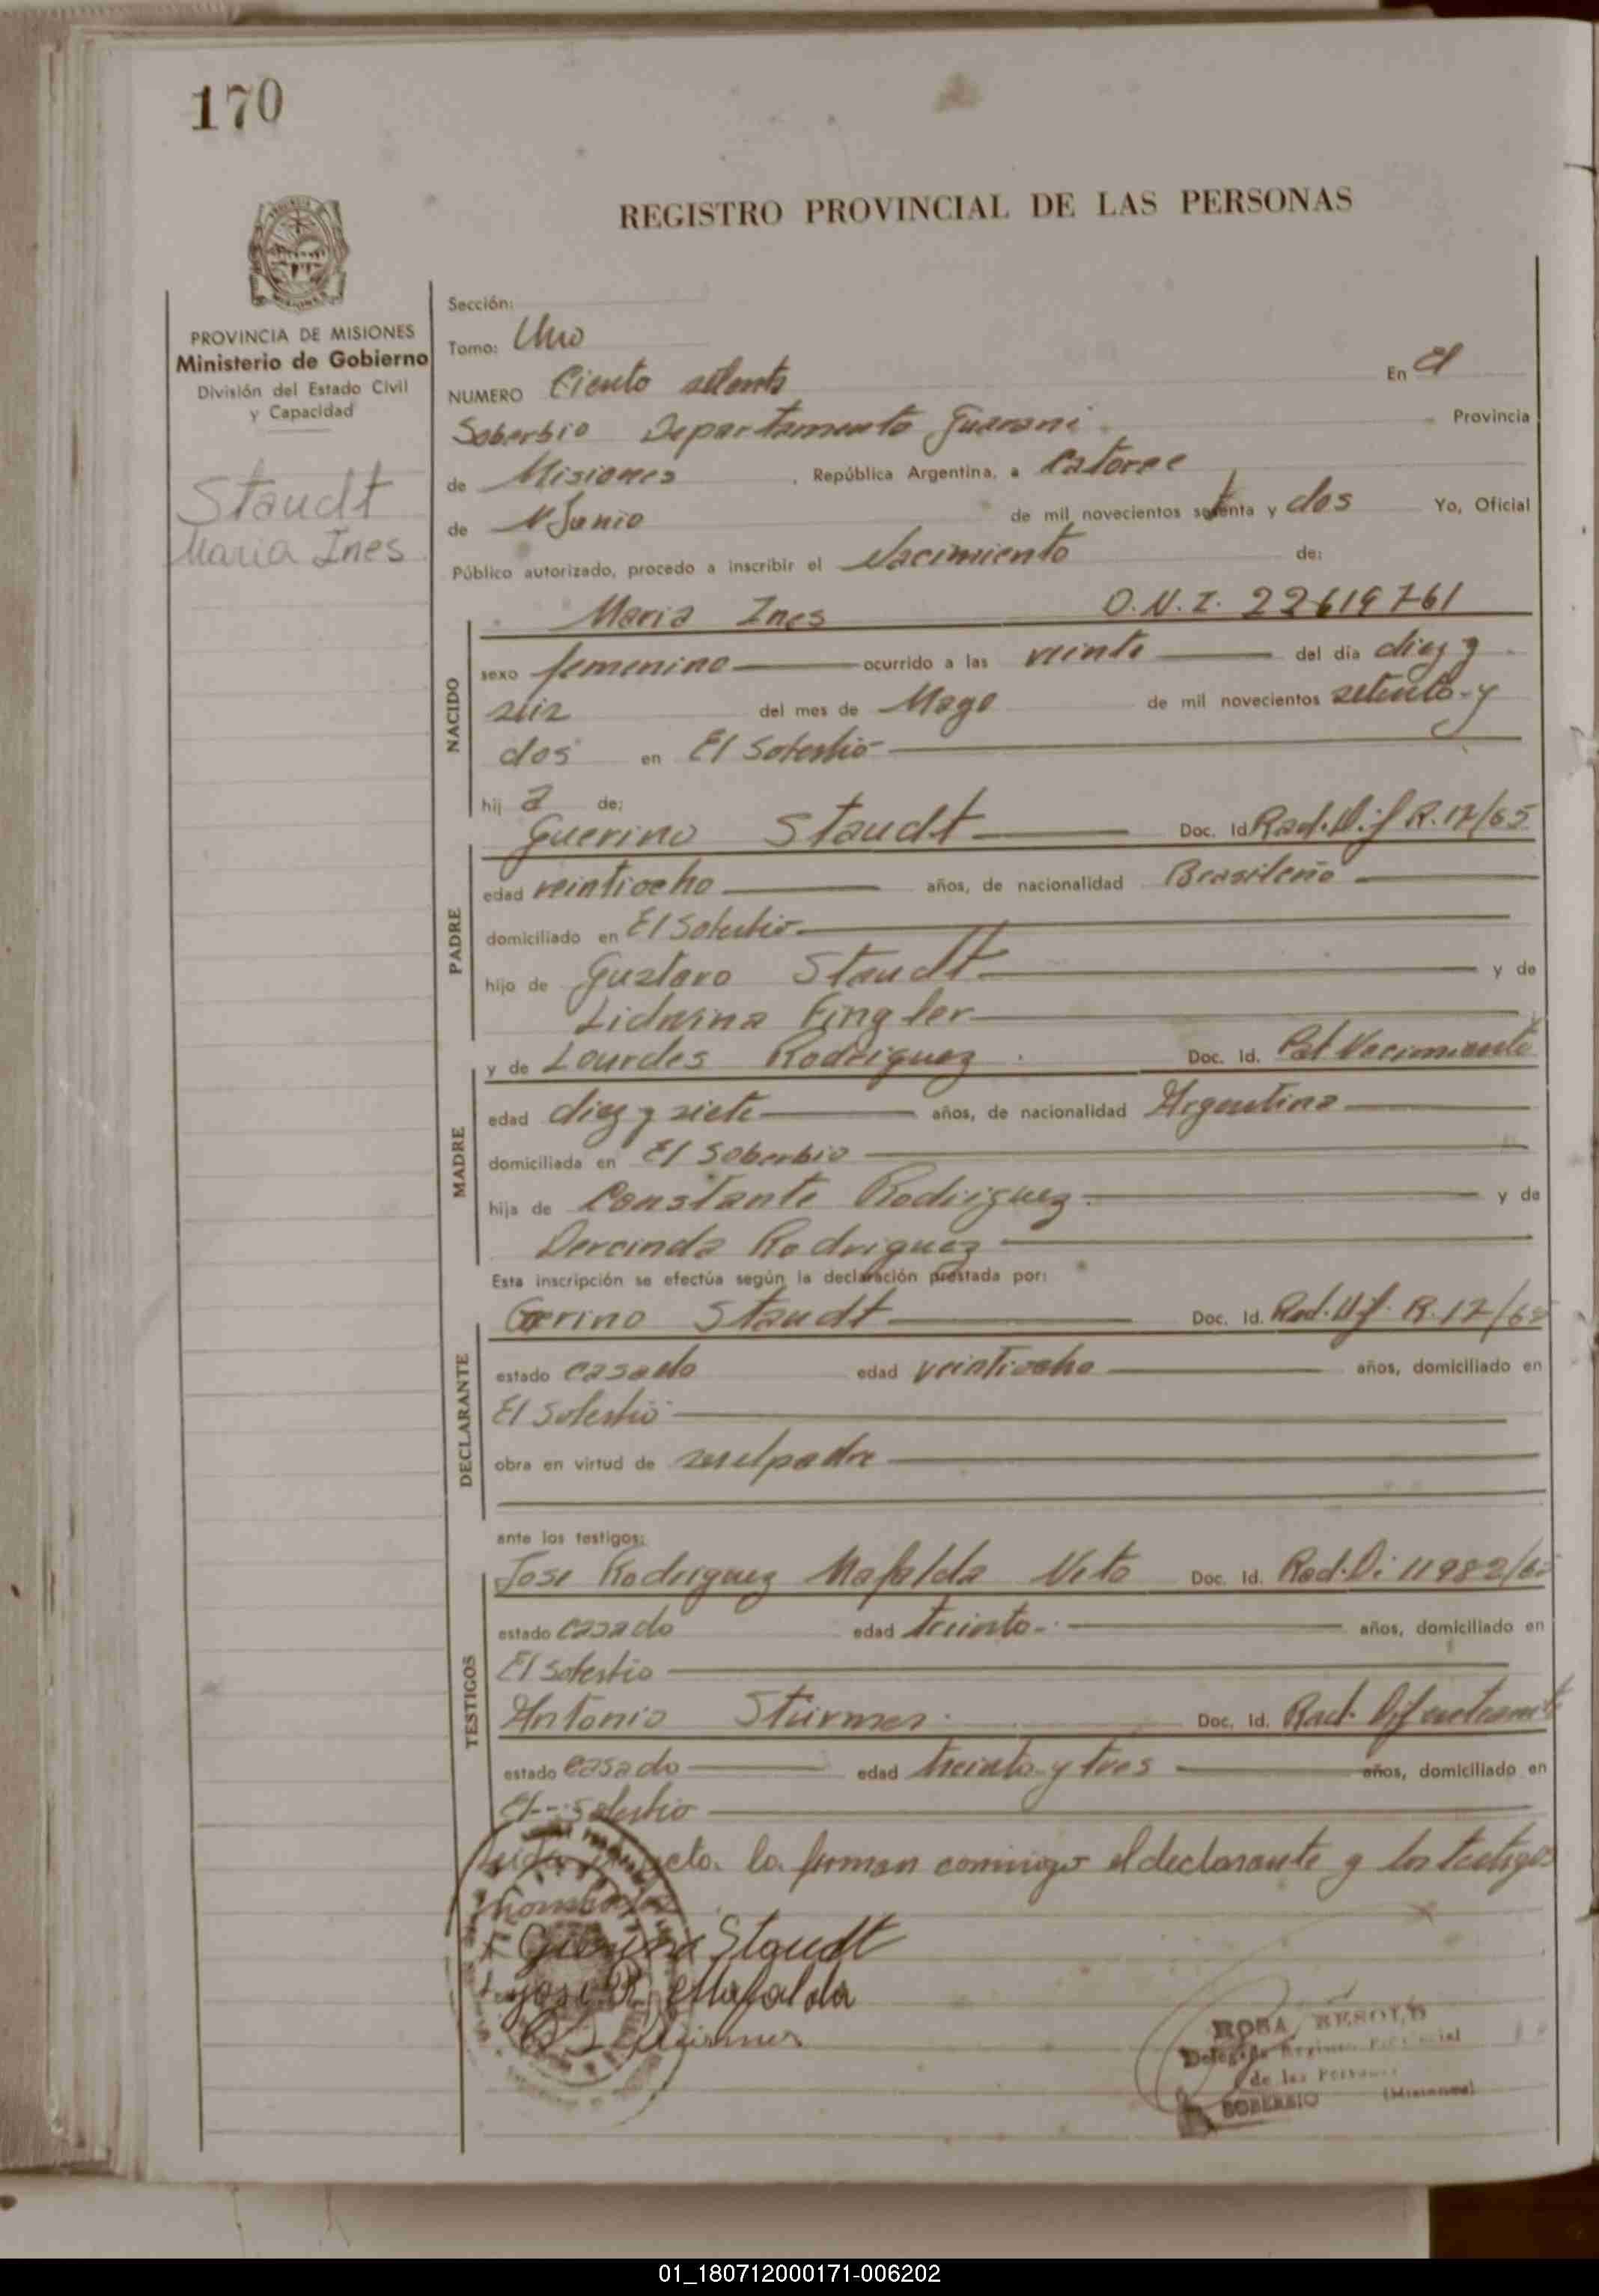 170
REGISTRO PROVINCIAL DE LAS PERSONAS
PROVINCIA DE MISIONES
Ministerio de Gobierno
División del Estado Civil
y Capacidad
Staudt
Maria Ines
Sección:
Tomo: Uno
NUMERO Ciento setenta En El
Soberbio Departamento Guarani Provincia
de Misiones, República Argentina, a Catorce
de Junio de mil novecientos setenta y dos Yo, Oficial
Público autorizado, procedo a inscribir el Nacimiento de:
NACIDO
Maria Ines D.N.I. 22619761
sexo femenino ocurrido a las veinte del día diez y
seis del mes de Mayo de mil novecientos setenta y
dos en El Soberbio
hij a de:
PADRE
Guerino Staudt Doc. Id Rad. Dif R. 12/65
edad veintiocho años, de nacionalidad Brasileño
domiciliado en El Soberbio
hijo de Gustavo Staudt y de
Lidwina Fingler
MADRE
y de Lourdes Rodriguez Doc. Id. Nacimiento
edad diez y siete años, de nacionalidad Argentina
domiciliada en El Soberbio
hija de Constante Rodriguez y de
Dercinda Rodriguez
Esta inscripción se efectúa según la declaración prestada por:
DECLARANTE
Gerino Staudt Doc. Id. Rad. Dif. R. 12/65
estado casado edad veintiocho años, domiciliado en
El Soberbio
obra en virtud de ser el padre
ante los testigos:
TESTIGOS
Jose Rodriguez Mafalda Neto Doc. Id. Rad. Di 11982
estado casado edad treinta años, domiciliado en
El Soberbio
Antonio Sturmer Doc. Id. Rad. Dif
estado casado edad treinta y tres años, domiciliado en
El Soberbio
Leida acta la firman conmigo el declarante y los testigos
Guerino Staudt
Jose R. Mafalda
ROSA BESOLD
Delegada Registro Provincial
de las Personas
SOBERBIO (Misiones)
01_180712000171-006202